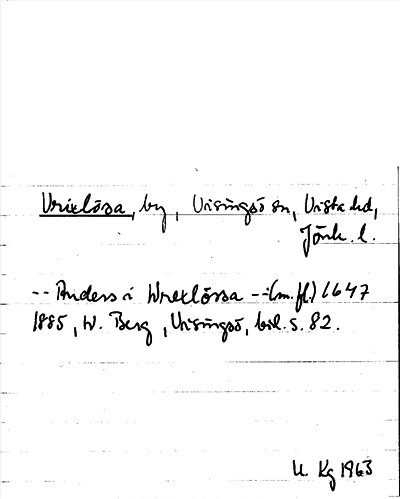 Vrixlösa, by, Visingsö sn, Vista hd,
Jönk. l.
-- Anders i Wrexlössa -- (m.fl.) 1647
1885, W. Berg, Visingsö, bil. s. 82.
U. Kg 1963